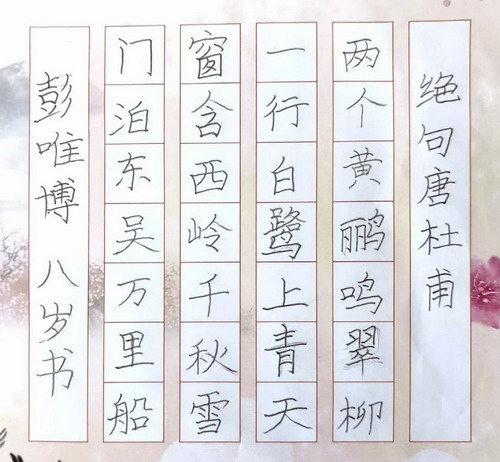 绝句唐杜甫
两个黄鹂鸣翠柳
一行白鹭上青天
窗含西岭千秋雪
门泊东吴万里船
彭唯博 八岁书